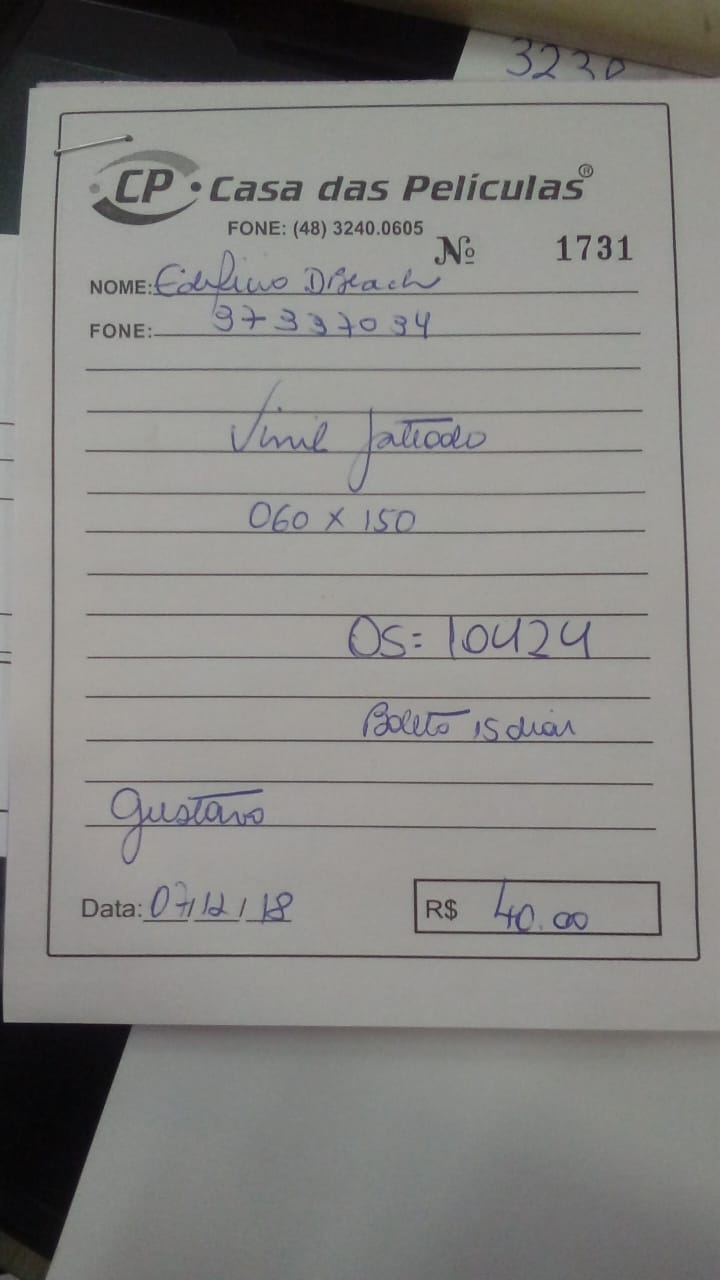 3230
CP • Casa das Películas®
FONE: (48) 3240.0605
Nº 1731
NOME: Edificio DBeach
FONE: 97337034
Vinil Jateado
060 x 150
OS= 10424
Boleto 15 dias
Gustavo
Data: 07/12/18 R$ 40.00